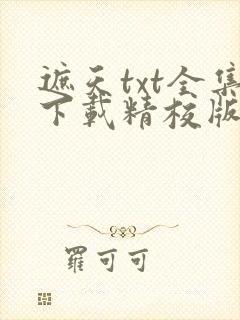 遮天txt全集
下载精校版
羅可可